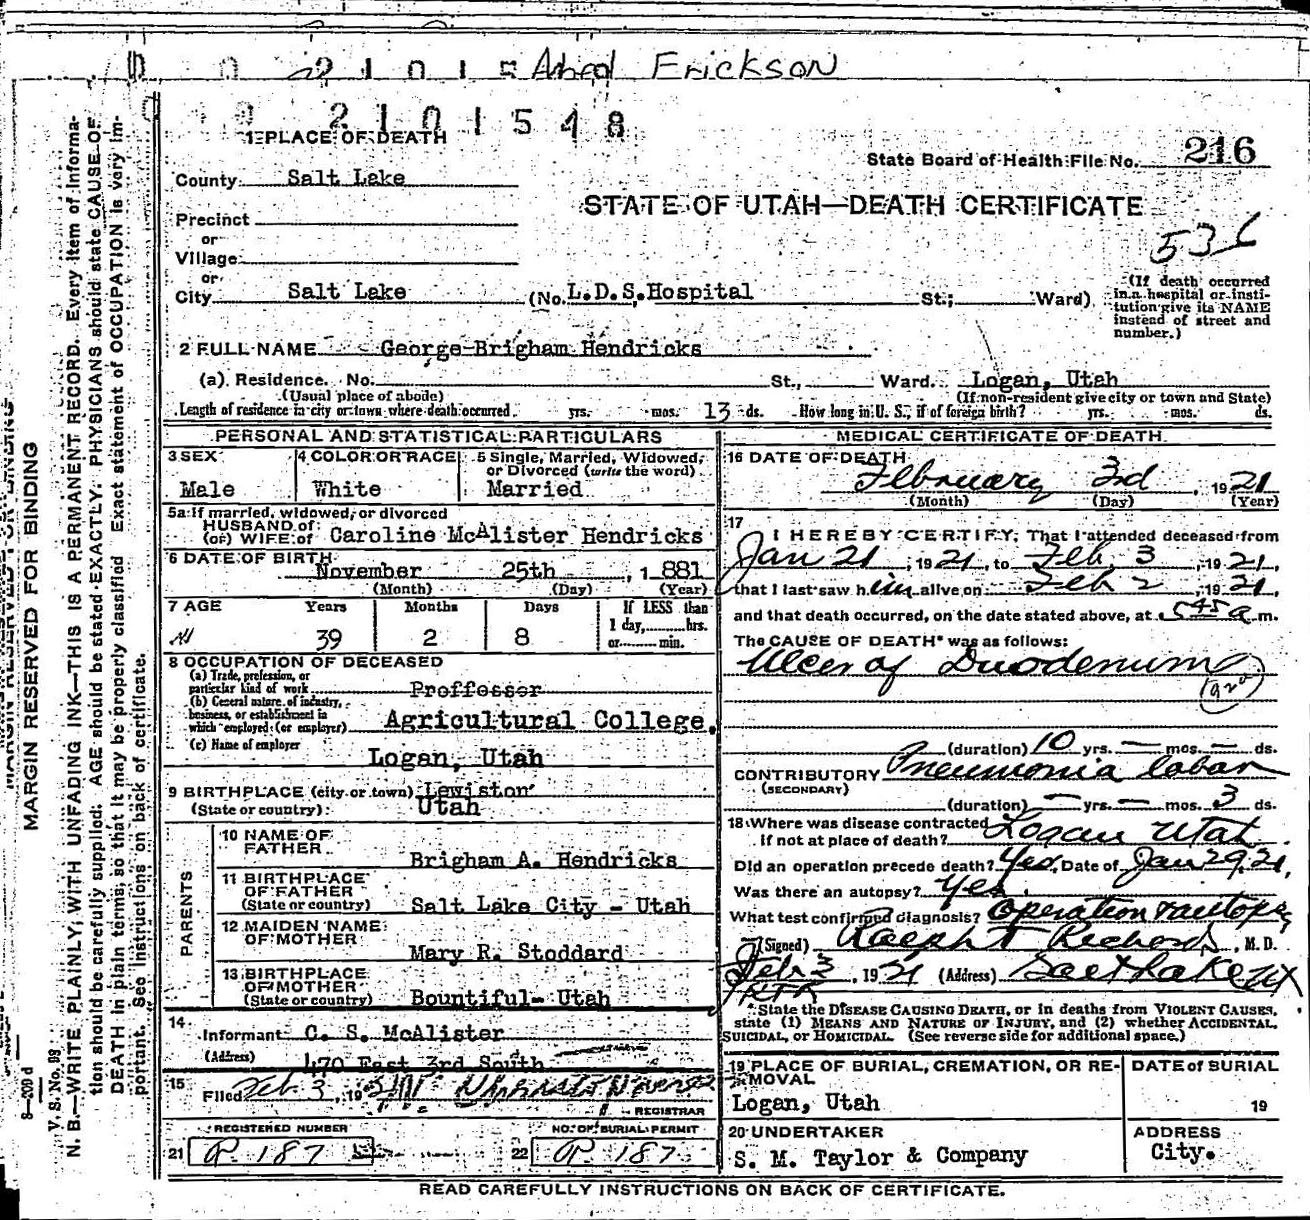 Ahed Erickson
2101548
1 PLACE OF DEATH
State Board of Health File No. 216
County Salt Lake
STATE OF UTAH—DEATH CERTIFICATE
Precinct
536
or
Village
or
City Salt Lake (No. L.D.S. Hospital St.; Ward)
(If death occurred in a hospital or insti-
tution give its NAME
instead of street and
number.)
2 FULL NAME George Brigham Hendricks
(a). Residence. No. St., Ward. Logan, Utah
(Usual place of abode) (If non-resident give city or town and State)
Length of residence in city or town where death occurred. yrs. mos. 13 ds. How long in U. S., if of foreign birth? yrs. mos. ds.
PERSONAL AND STATISTICAL PARTICULARS
3 SEX 4 COLOR OR RACE 5 Single, Married, Widowed,
or Divorced (write the word)
Male White Married
5a If married, widowed, or divorced
HUSBAND of
(or) WIFE of Caroline McAlister Hendricks
6 DATE OF BIRTH
November 25th, 1881
(Month) (Day) (Year)
7 AGE Years Months Days If LESS than
1 day,........hrs.
39 2 8 or........min.
8 OCCUPATION OF DECEASED
(a) Trade, profession, or
particular kind of work Proffessor
(b) General nature of industry,
business, or establishment in
which employed (or employer) Agricultural College,
(c) Name of employer
Logan, Utah
9 BIRTHPLACE (city or town) Lewiston
(State or country) Utah
PARENTS
10 NAME OF
FATHER Brigham A. Hendricks
11 BIRTHPLACE
OF FATHER
(State or country) Salt Lake City - Utah
12 MAIDEN NAME
OF MOTHER Mary R. Stoddard
13 BIRTHPLACE
OF MOTHER
(State or country) Bountiful- Utah
14
Informant C. S. McAlister
(Address) 470 East 3rd South
15
Filed Feb 3, 19
REGISTRAR
REGISTERED NUMBER NO. OF BURIAL PERMIT
21 P 187 22 P 187
MEDICAL CERTIFICATE OF DEATH
16 DATE OF DEATH
February 3rd, 1921
(Month) (Day) (Year)
17
I HEREBY CERTIFY, That I attended deceased from
Jan 21, 1921, to Feb 3, 1921,
that I last saw him alive on Feb 2, 1921,
and that death occurred, on the date stated above, at 545 a m.
The CAUSE OF DEATH* was as follows:
Ulcer of Duodenum
(duration) 10 yrs. — mos. — ds.
CONTRIBUTORY Pneumonia lobar
(SECONDARY)
(duration) — yrs. — mos. 3 ds.
18 Where was disease contracted
if not at place of death? Logan Utah
Did an operation precede death? Yes, Date of Jan 29, 21,
Was there an autopsy? Yes.
What test confirmed diagnosis? Operation & autopsy
(Signed) Ralph T Richards, M. D.
Feb 3, 1921 (Address) Salt Lake Ut
*State the DISEASE CAUSING DEATH, or in deaths from VIOLENT CAUSES,
state (1) MEANS AND NATURE OF INJURY, and (2) whether ACCIDENTAL,
SUICIDAL, or HOMICIDAL. (See reverse side for additional space.)
19 PLACE OF BURIAL, CREMATION, OR RE-
MOVAL DATE of BURIAL
Logan, Utah 19
20 UNDERTAKER ADDRESS
S. M. Taylor & Company City.
READ CAREFULLY INSTRUCTIONS ON BACK OF CERTIFICATE.
MARGIN RESERVED FOR BINDING
V. S. No. 98
N. B.—WRITE PLAINLY, WITH UNFADING INK—THIS IS A PERMANENT RECORD. Every item of informa-
tion should be carefully supplied. AGE should be stated EXACTLY. PHYSICIANS should state CAUSE OF
DEATH in plain terms, so that it may be properly classified. Exact statement of OCCUPATION is very im-
portant. See instructions on back of certificate.